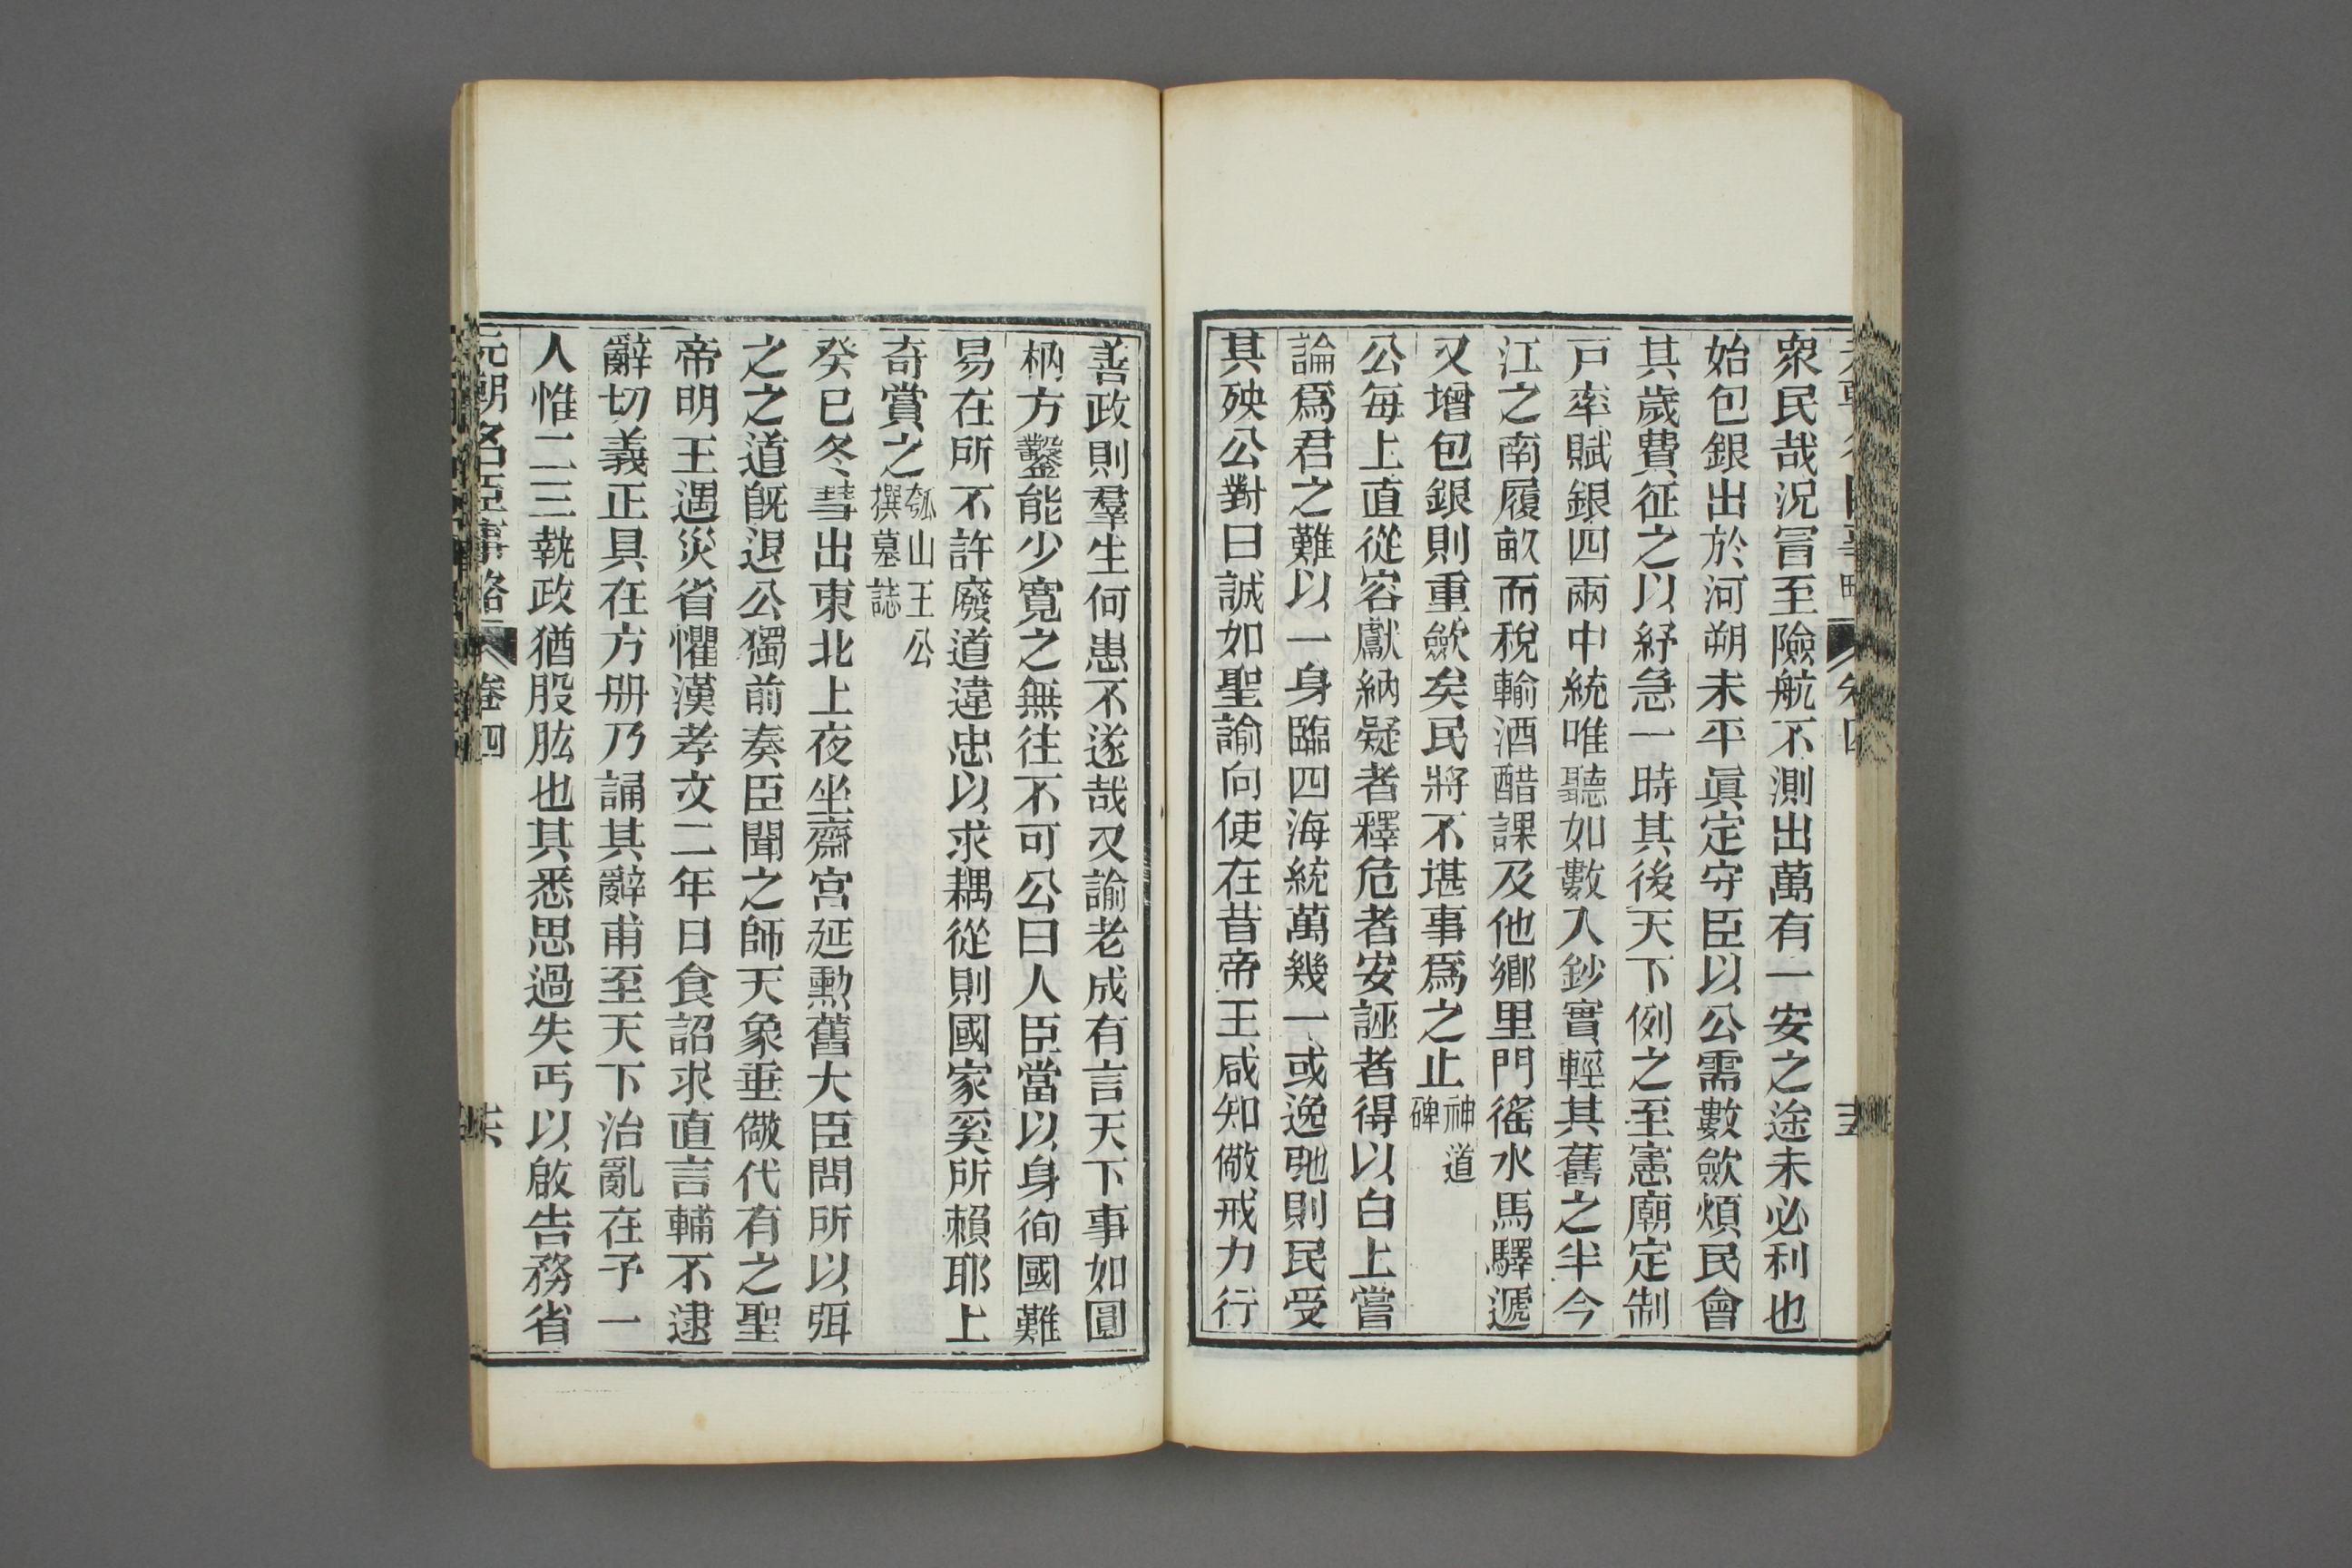 衆民哉况冒至險航不測出萬有一安之途未必利也
始包銀出於河朔未平眞定守臣以公需數斂煩民會
其歲費征之以紓急一時其後天下例之至憲廟定制
戸率賦銀四兩中統唯聽如數入鈔實輕其舊之半今
江之南履畝而稅輸酒醋課及他鄉里門徭水馬驛遞
又增包銀則重斂矣民將不堪事爲之止神道
碑
公每上直從容獻納疑者釋危者安誣者得以白上嘗
論爲君之難以一身臨四海統萬幾一或逸豫則民受
其殃公對曰誠如聖諭向使在昔帝王咸知儆戒力行
善政則羣生何患不遂哉又諭老成有言天下事如圓
枘方鑿能少寬之無往不可公曰人臣當以身徇國難
易在所不許廢道違忠以求耦從則國家奚所賴耶上
奇賞之瓠山王公
撰墓誌
癸巳冬彗出東北上夜坐齋宮延勳舊大臣問所以弭
之之道旣退公獨前奏臣聞之師天象垂儆代有之聖
帝明王遇災省懼漢孝文二年日食詔求直言輔不逮
辭切義正具在方册乃誦其辭甫至天下治亂在予一
人惟二三執政猶股肱也其悉思過失丐以啟告務省
元朝名臣事略 卷四 十六